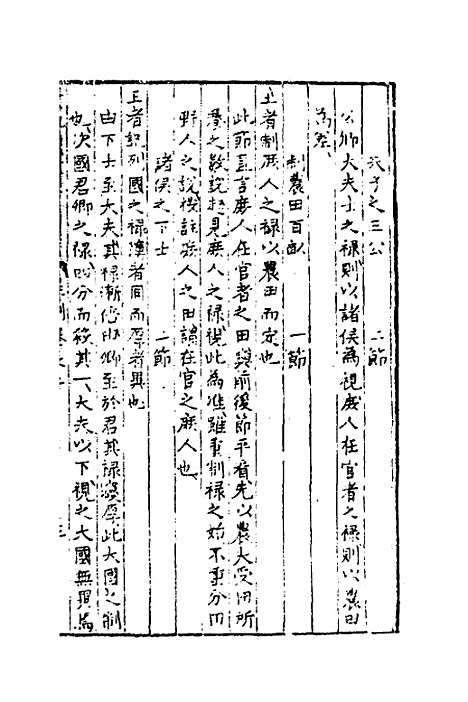 天子之三公　二節
公卿大夫士之禄則以諸侯為視庶人在官者之禄則以農田
為差
制農田百畝　一節
王者制庶人之禄以農田而定也
此節盖言庶人在官者之田與前後節平看先以農夫受田所
之数説起見庶人之禄視此為准雖重制禄之始不重分田
野人之説按註庶人之田謂在官之庶人也
諸侯之下士　一節
王者記列國之禄漢者同而厚者異也
由下士至大夫其禄漸倍由卿至於君其禄寖厚此大國之制
也次國君卿之禄四分而殺其一大夫以下視之大國無損焉